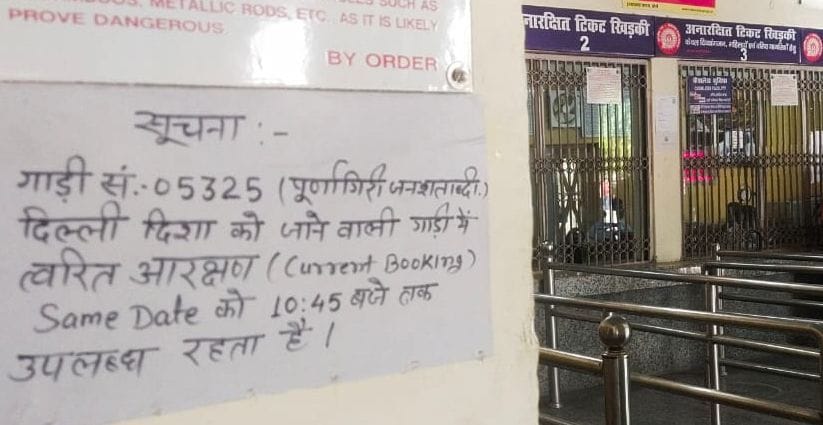 METALLIC RODS, ETC., AS IT IS LIKELY
PROVE DANGEROUS
BY ORDER
सूचना :-
गाड़ी सं.-05325 (पूर्णागिरी जनशताब्दी.)
दिल्ली दिशा को जाने वाली गाड़ी में
त्वरित आरक्षण (Current Booking)
Same Date को 10:45 बजे तक
उपलब्ध रहता है।
नारक्षित टिकट खिड़की
2
अनारक्षित टिकट खिड़की
3